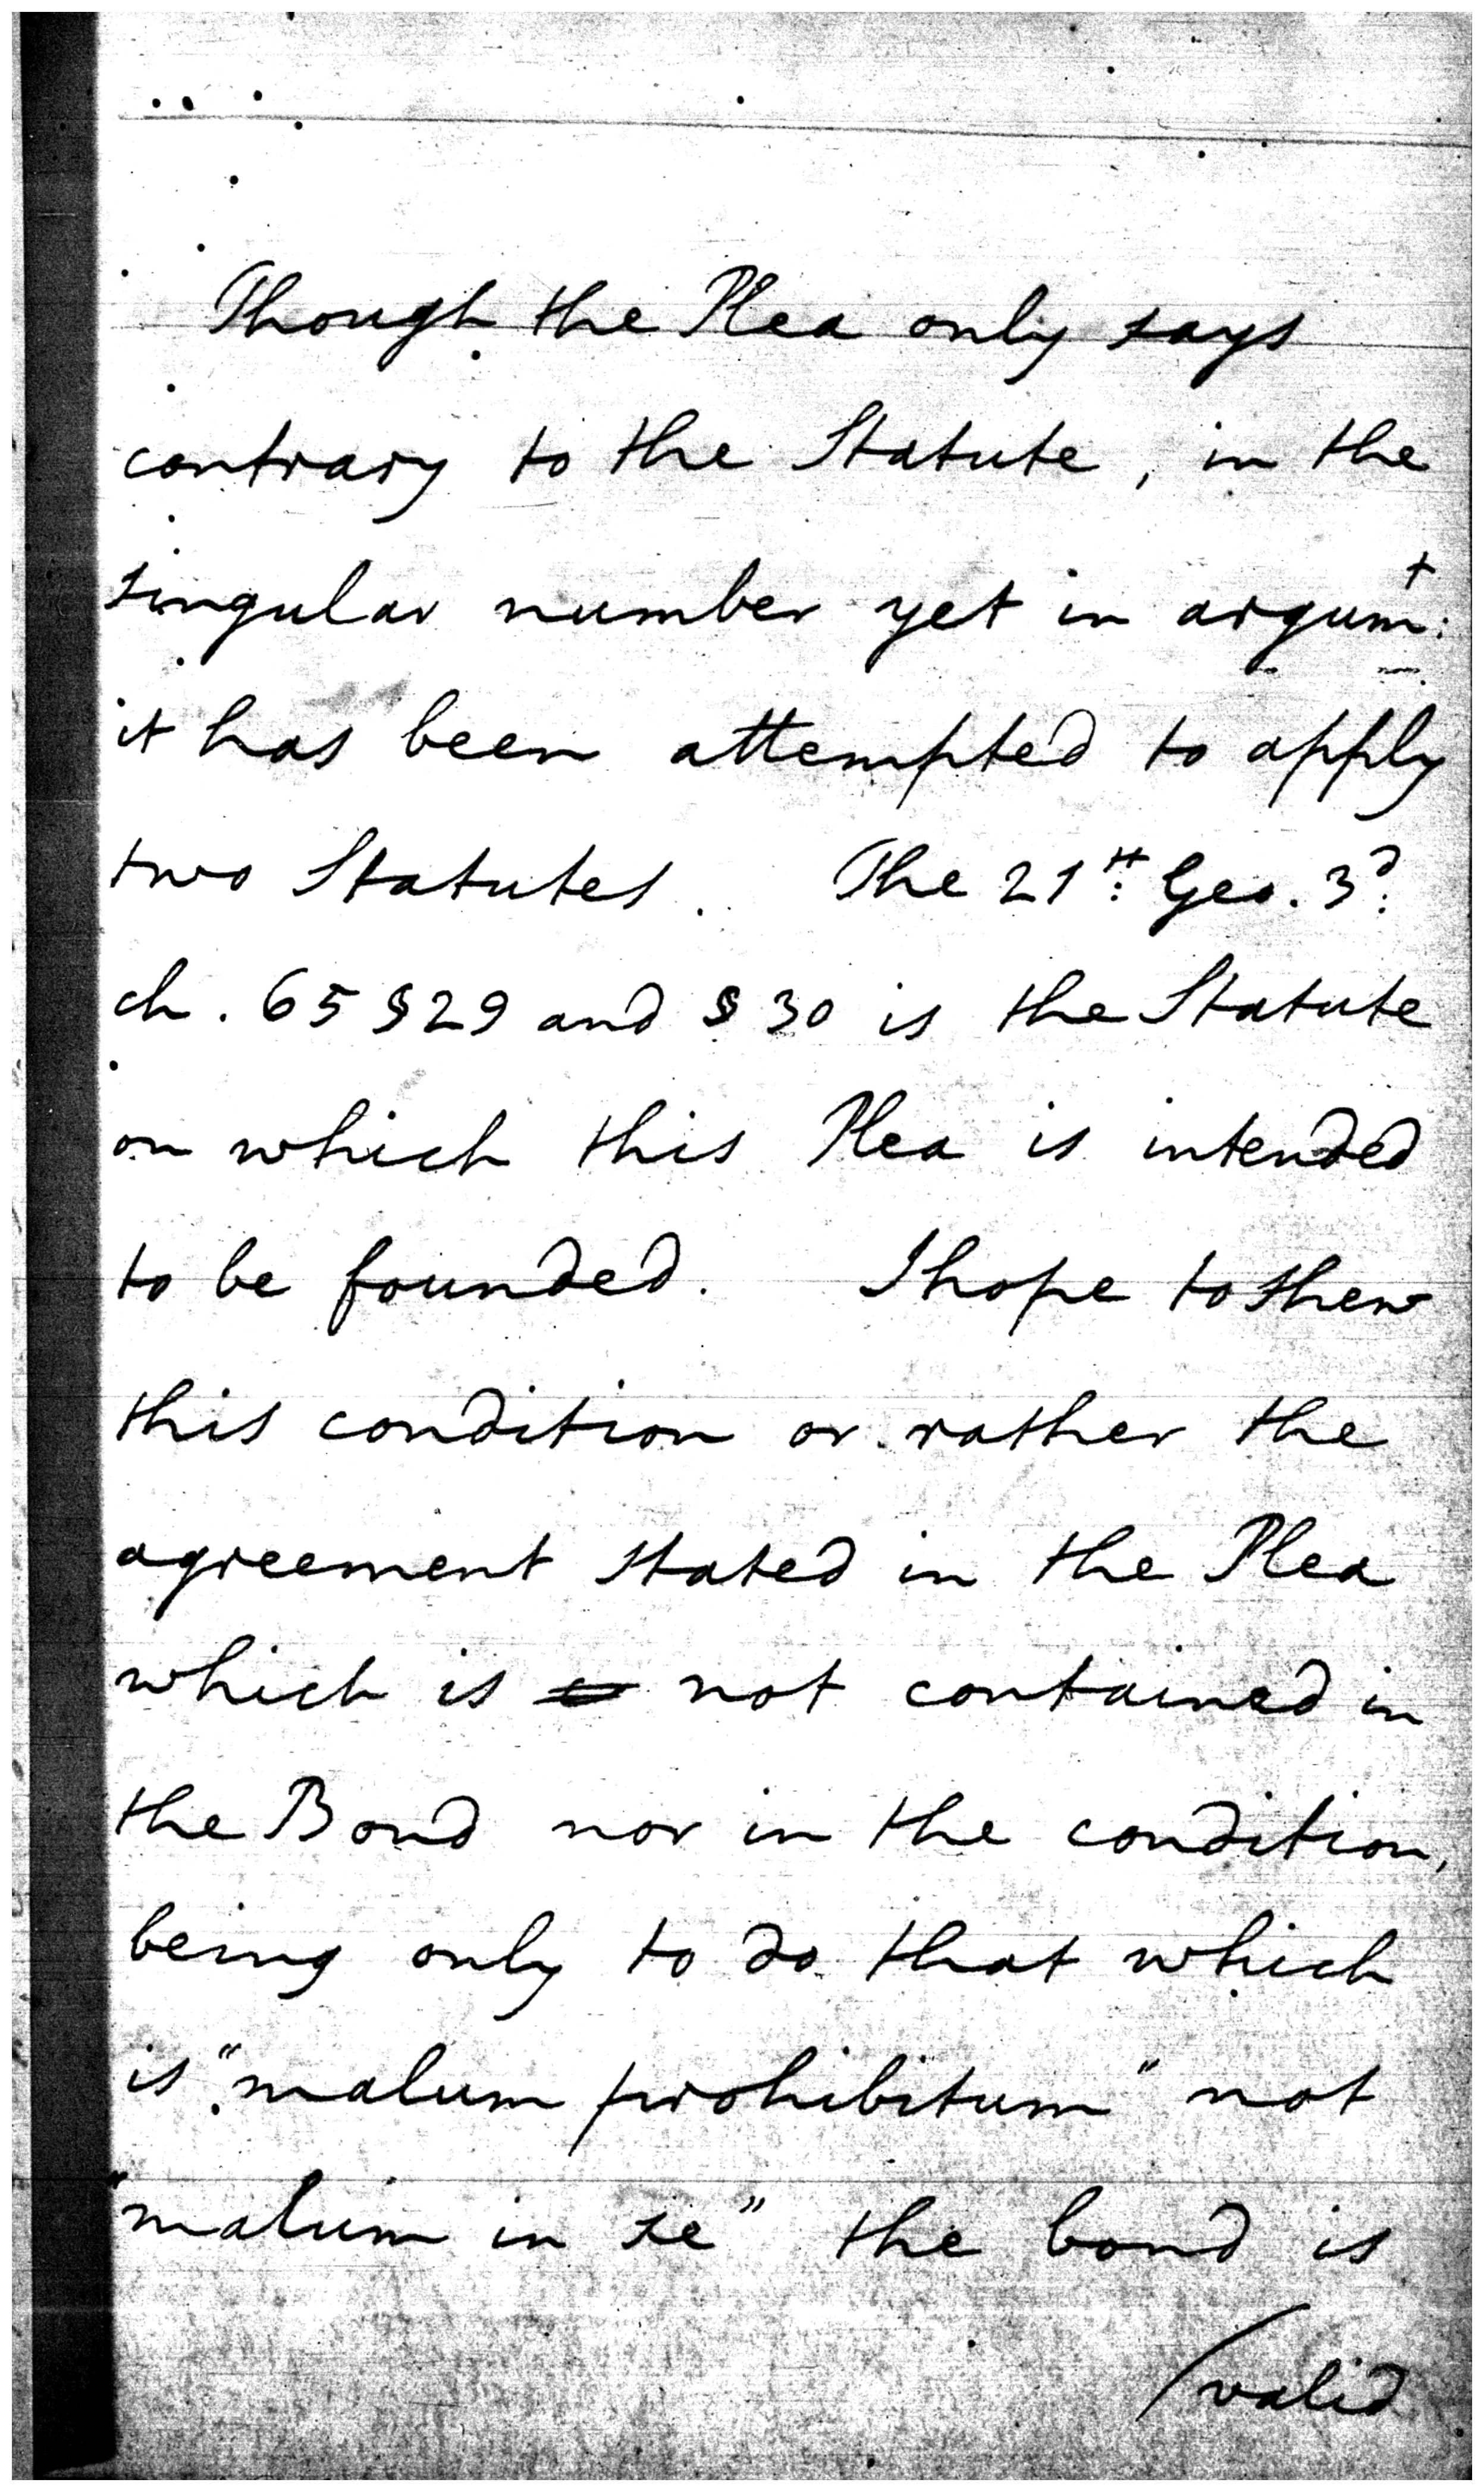 Though the Plea only says
contrary to the Statute, in the
singular number yet in argumt:
it has been attempted to apply
two Statutes. The 21st: Geo. 3d:
ch. 65 §29 and §30 is the Statute
on which this Plea is intended
to be founded. I hope to shew
this condition or rather the
agreement stated in the Plea
which is not contained in
the Bond nor in the condition,
being only to do that which
is "malum prohibitum" not
"malum in se" the bond is
/valid